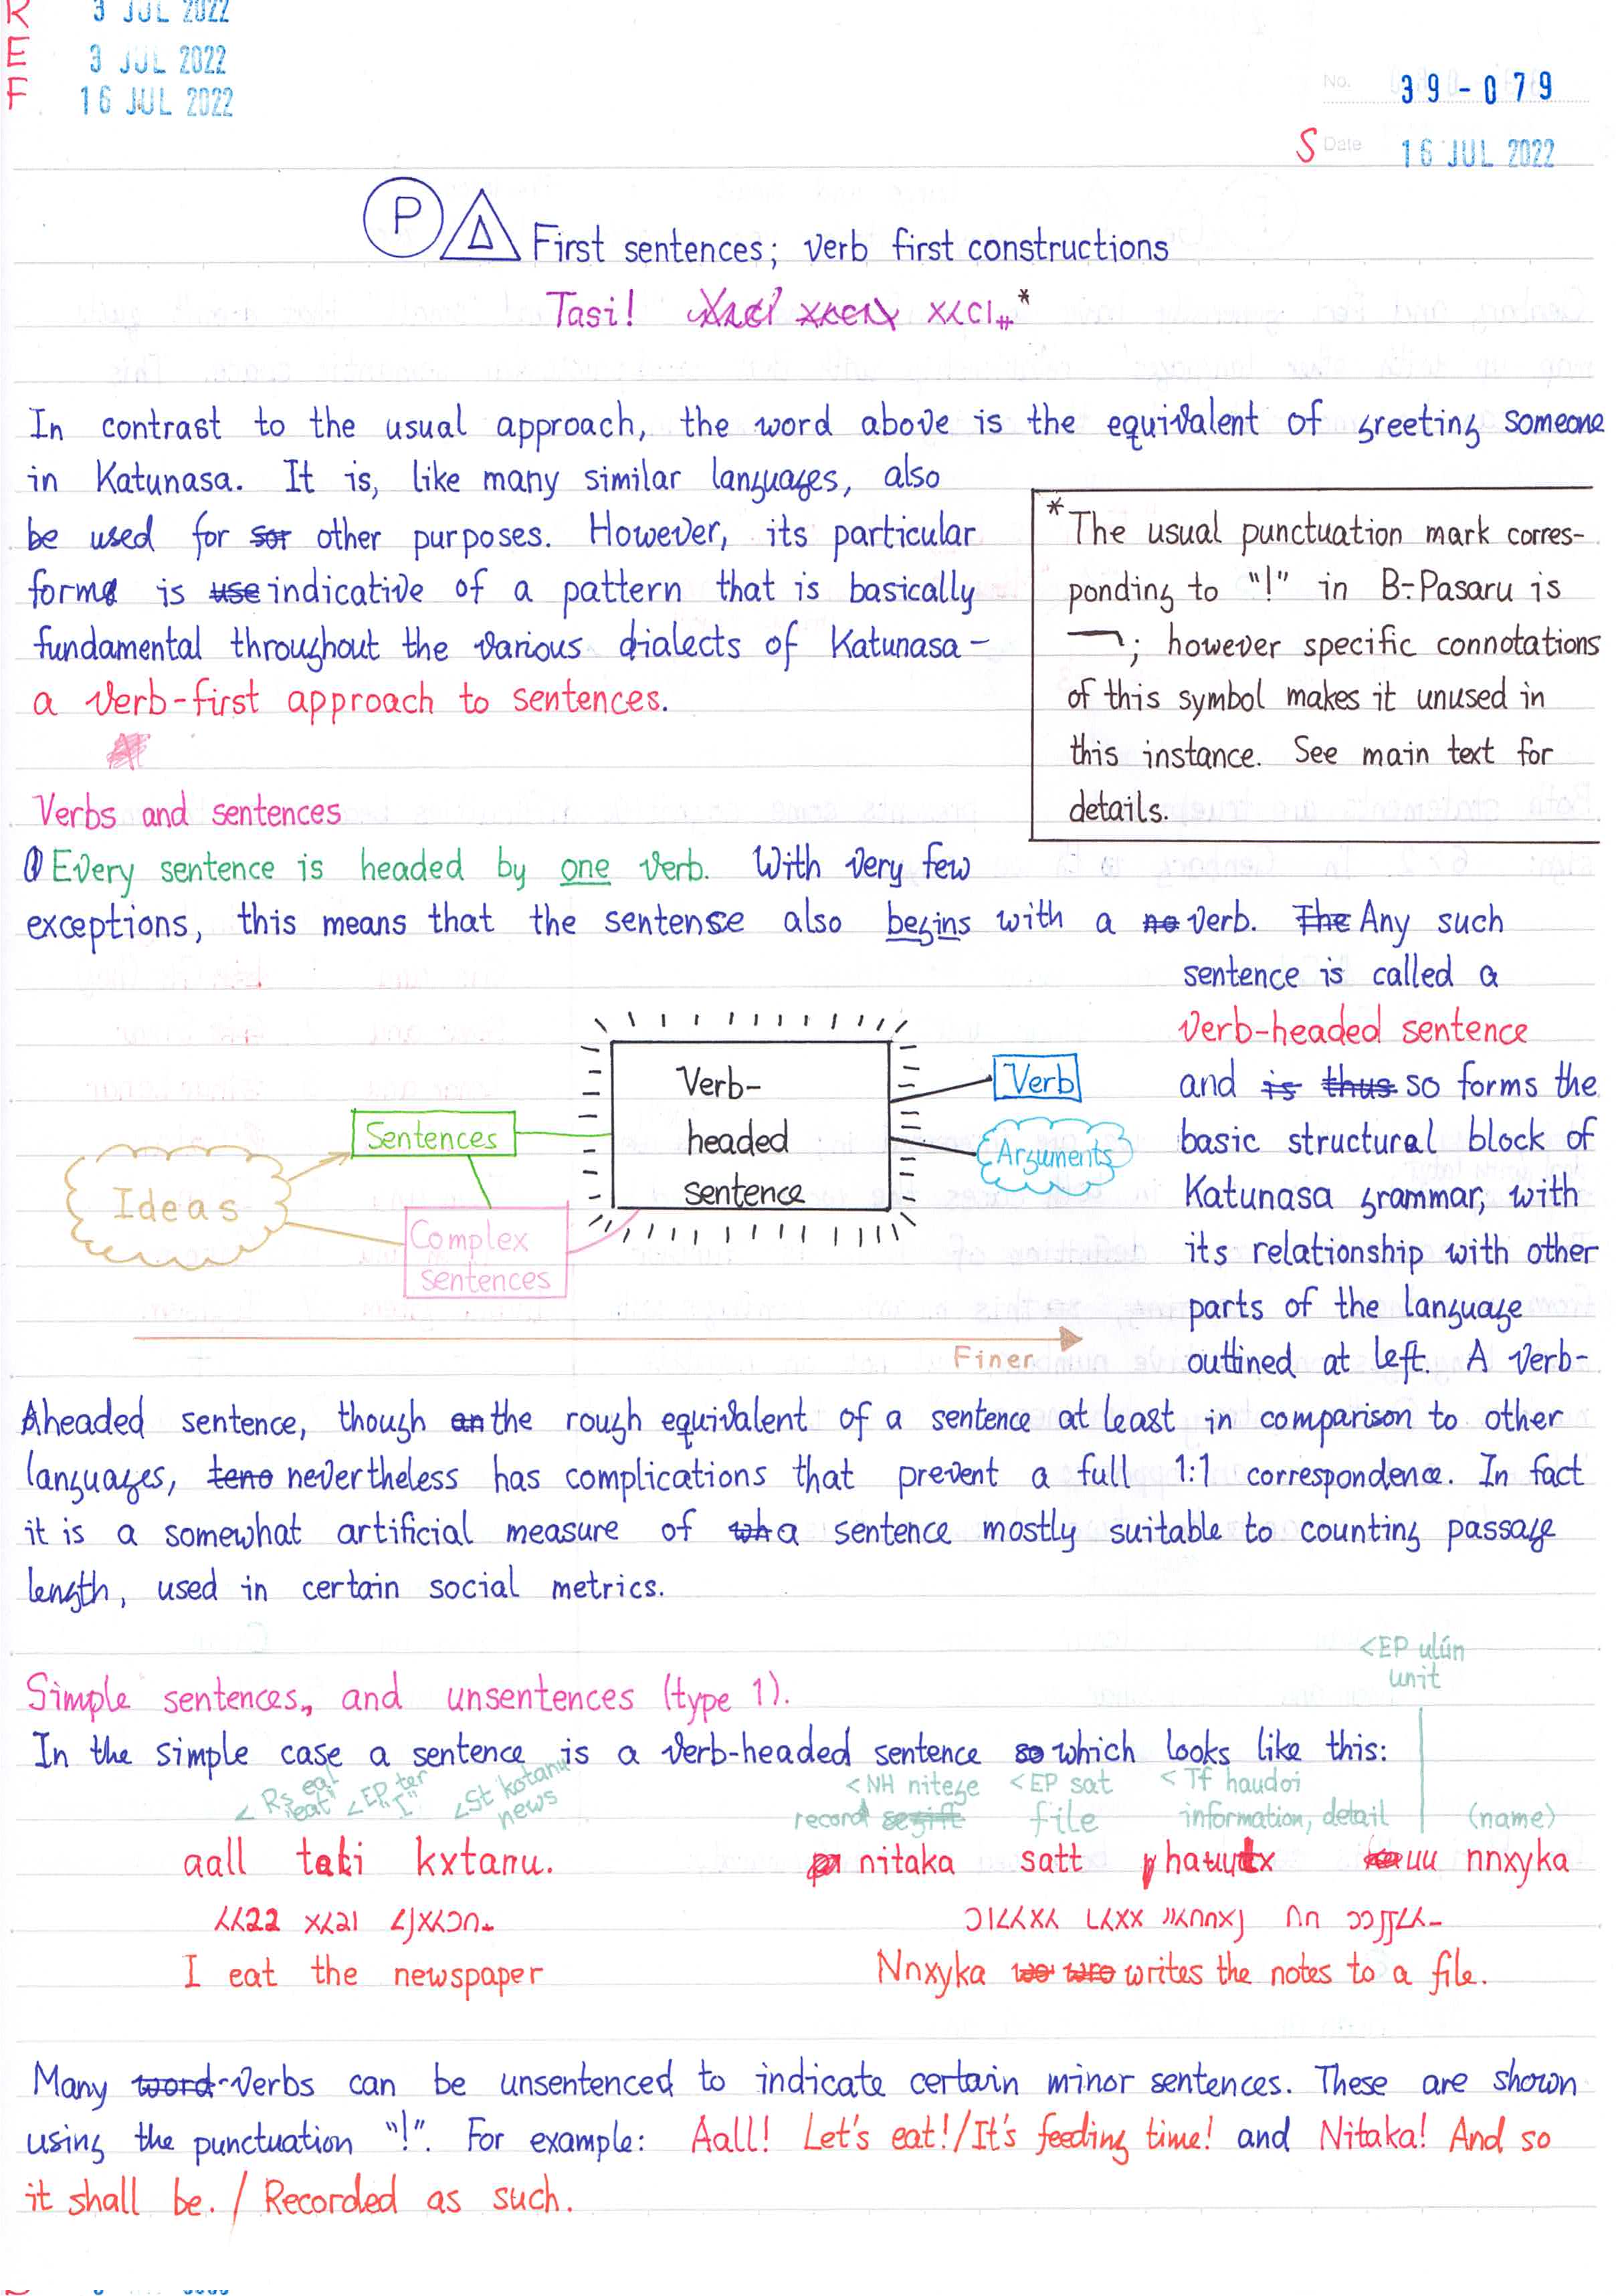 R 3 JUL 2022
E 3 JUL 2022
F 16 JUL 2022
No. 39-079
S Date 16 JUL 2022
P Δ First sentences; verb first constructions
Tasi!
In contrast to the usual approach, the word above is the equivalent of greeting someone
in Katunasa. It is, like many similar languages, also
be used for sor other purposes. However, its particular
forms is use indicative of a pattern that is basically
fundamental throughout the various dialects of Katunasa –
a verb-first approach to sentences.
* The usual punctuation mark corres-
ponding to "!" in B-Pasaru is
; however specific connotations
of this symbol makes it unused in
this instance. See main text for
details.
Verbs and sentences
Every sentence is headed by one verb. With very few
exceptions, this means that the sentense also begins with a no verb. The Any such
sentence is called a
verb-headed sentence
and is thus so forms the
basic structural block of
Katunasa grammar, with
its relationship with other
parts of the language
outlined at left. A verb-
Ideas
Sentences
Complex
sentences
Verb-
headed
sentence
Verb
Arguments
Finer
headed sentence, though an the rough equivalent of a sentence at least in comparison to other
languages, teno nevertheless has complications that prevent a full 1:1 correspondence. In fact
it is a somewhat artificial measure of wh a sentence mostly suitable to counting passage
length, used in certain social metrics.
Simple sentences, and unsentences (type 1).
<EP ulún
unit
In the simple case a sentence is a verb-headed sentence so which looks like this:
< Rs eat "eat" <EP ter "I" <St kotanu news
<NH nitege record <EP sat file <Tf haudoi information, detail (name)
aall taki kxtanu.
nitaka satt hauutx uu nnxyka
I eat the newspaper
Nnxyka wo wro writes the notes to a file.
Many word verbs can be unsentenced to indicate certain minor sentences. These are shown
using the punctuation "!". For example: Aall! Let's eat!/It's feeding time! and Nitaka! And so
it shall be. / Recorded as such.